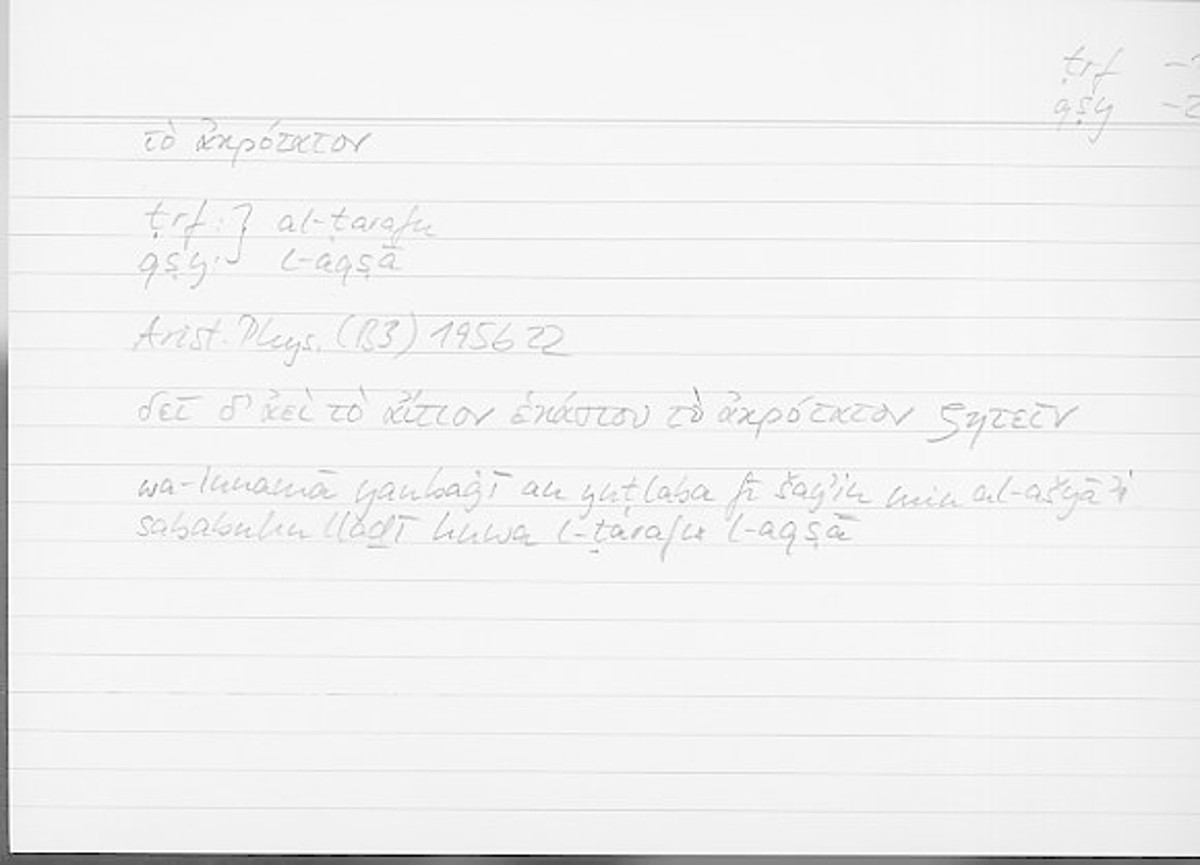 ṭrf
qṣy
τὸ ἀκρότατον
ṭrf: } al-ṭarafu
qṣy: l-aqṣā
Arist. Phys. (B3) 195b22
δεῖ δ' ἀεὶ τὸ αἴτιον ἑκάστου τὸ ἀκρότατον ζητεῖν
wa-innamā yanbaġī an yuṭlaba fī šayʾin min al-ašyāʾi
sababuhu lladī huwa l-ṭarafu l-aqṣā